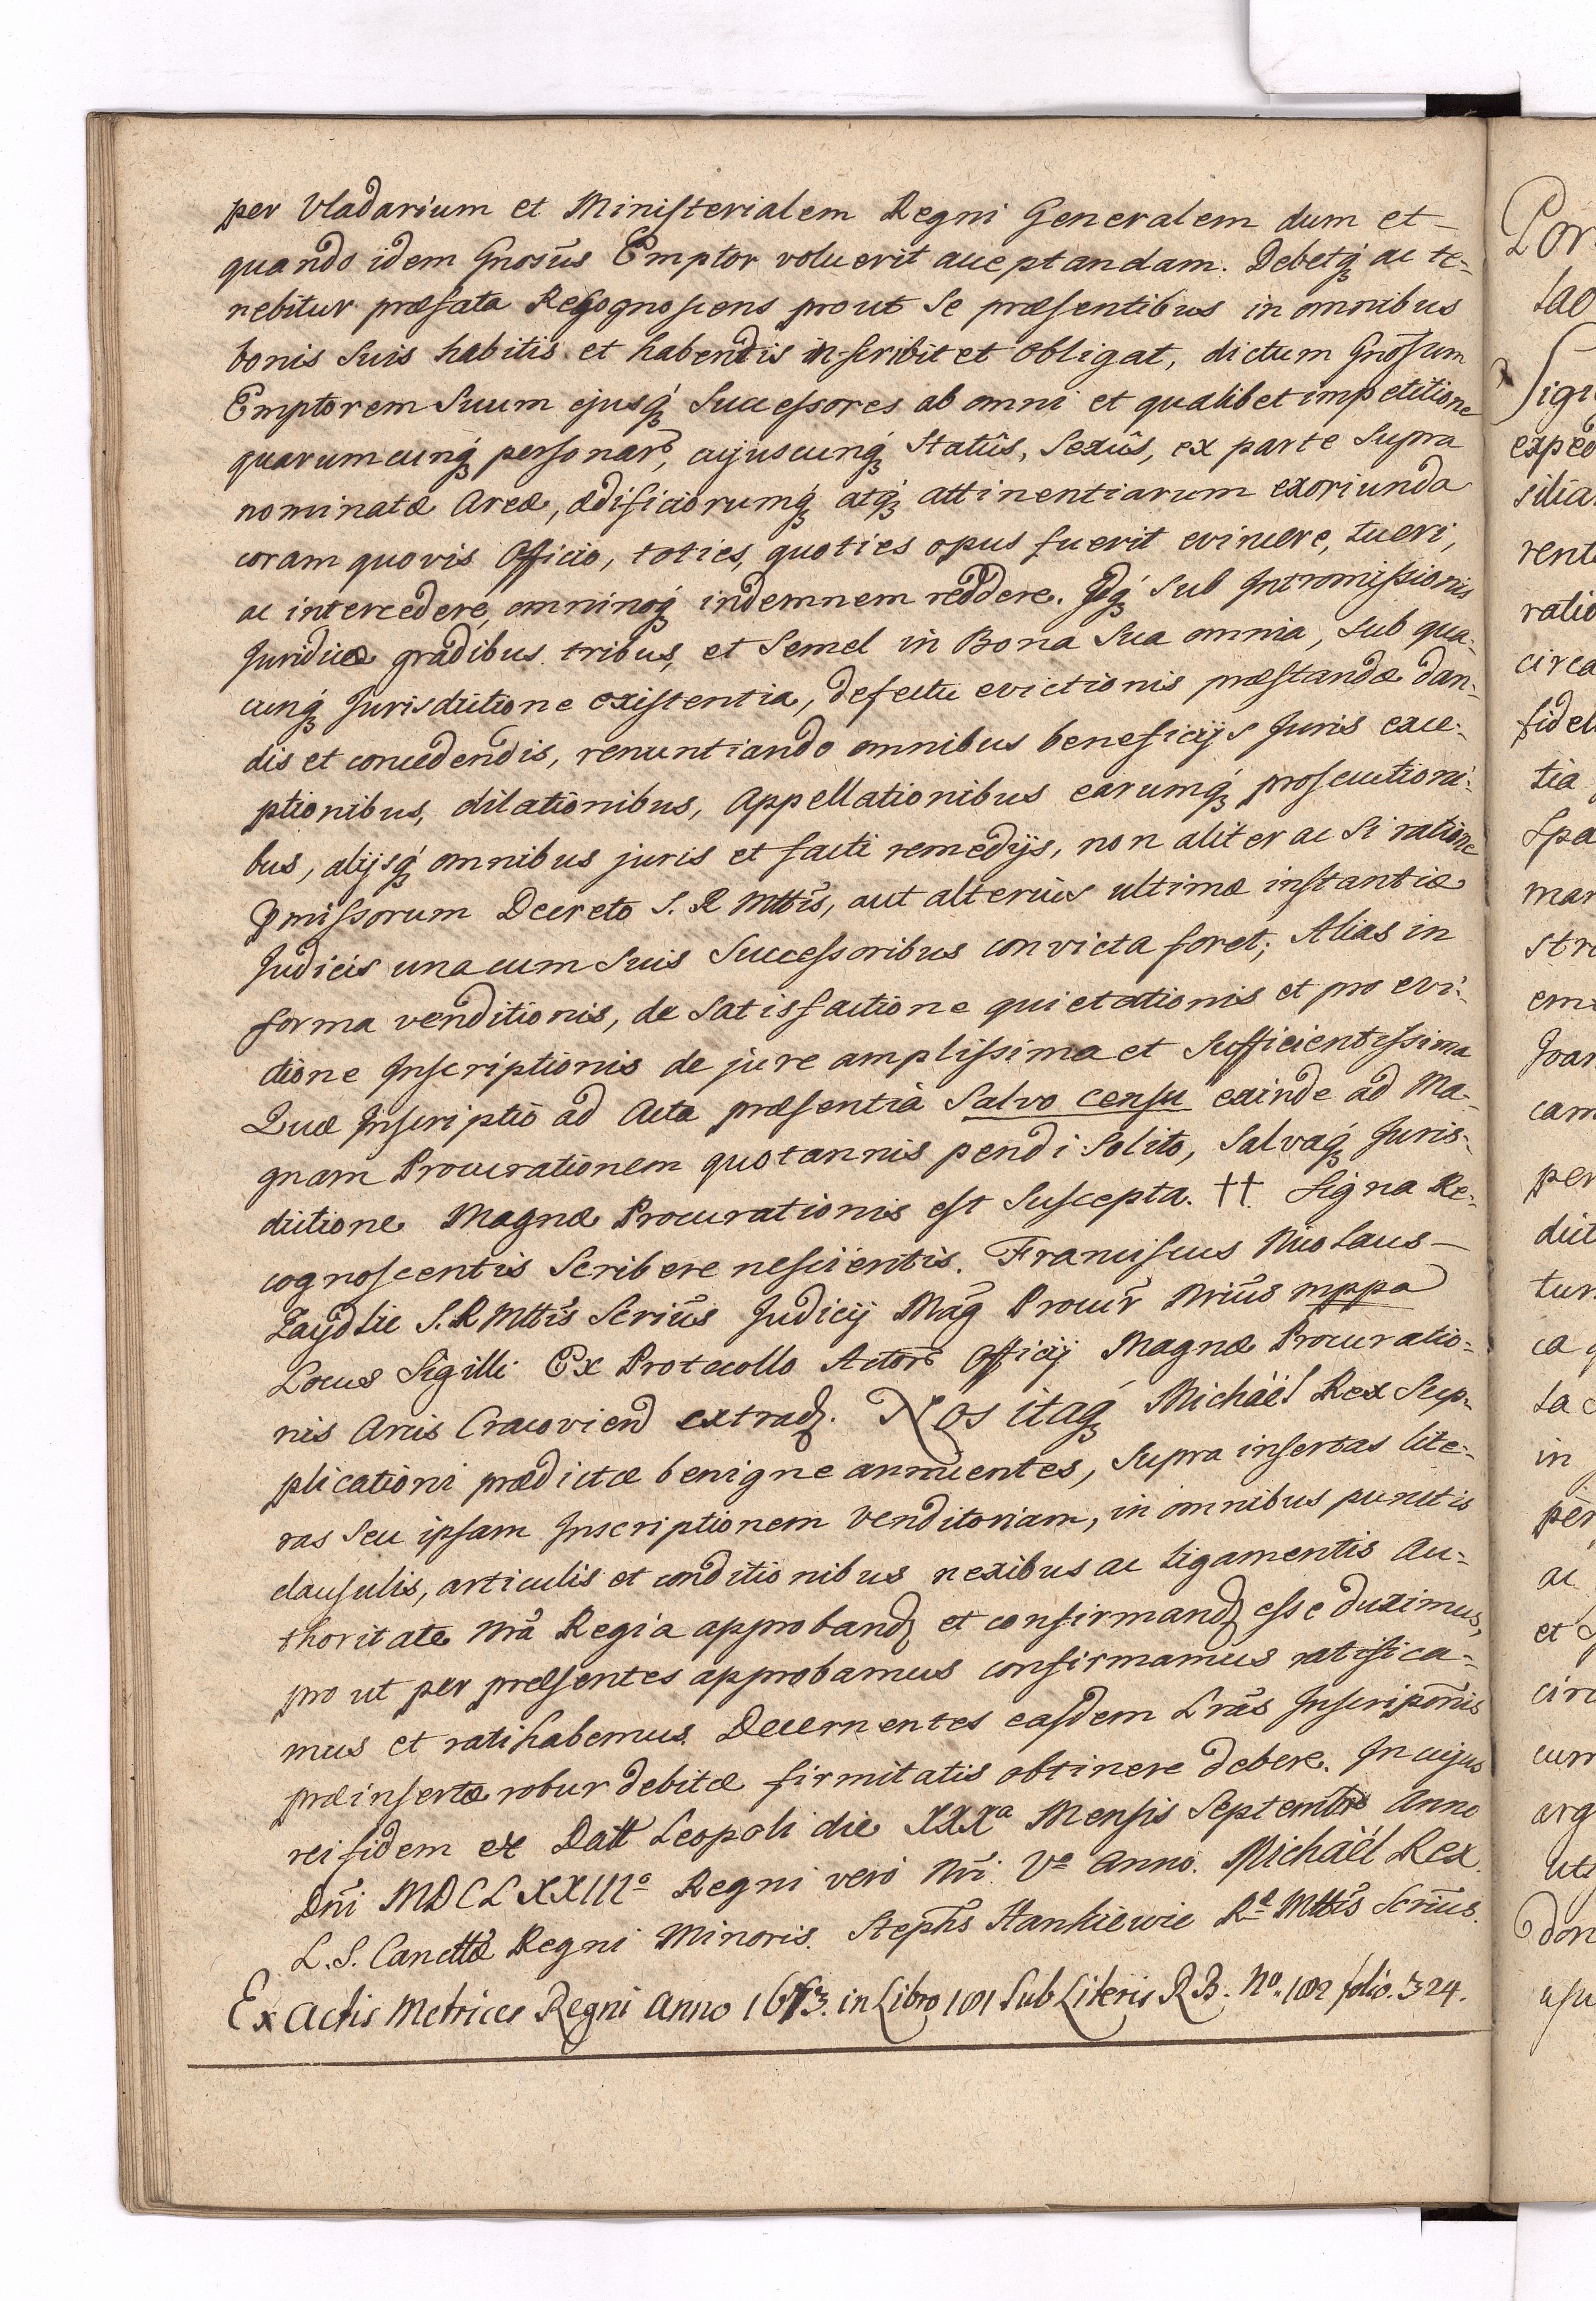 per Vladarium et Ministerialem Regni Generalem dum et –
quando idem Gnosus Emptor voluerit acceptandam. Debetq; ac te-
nebitur præfata Recognoscens prout se præsentibus in omnibus
bonis suis habitis et habendis inscribit et obligat, dictum Gnosum
Emptorem suum ejusq; Successores ab omni et qualibet impetitione
quarumcunq; personar, cujuscunq; statûs, sexûs, ex parte supra
nominatæ Areæ, ædificiorumq; atq; attinentiarum exoriunda
coram quovis Officio, toties, quoties opus fuerit evincere, tueri,
ac intercedere, omninoq; indemnem reddere. Idq; sub Intromissionis
Juridicæ gradibus tribus, et semel in Bona sua omnia, sub qua-
cunq; Jurisdictione existentia, defectu evictionis præstandæ dan-
dis et concedendis, renuntiando omnibus beneficijs Juris exce-
ptionibus, dilationibus, Appellationibus earumq; prosecutioni-
bus, alijsq; omnibus juris et facti remedijs, non aliter ac si ratione
pmissorum Decreto S. R Mttis, aut alterius ultimæ instantiæ
Judicis una cum suis Successoribus convicta foret; Alias in
forma venditionis, de satisfactione quietationis et pro evi-
ctione Inscriptionis de jure amplissima et sufficientissima
Quæ Inscriptio ad Acta præsentia Salvo censu exinde ad Ma-
gnam Procurationem quotannis pendi solito, salvaq; Juris-
dictione Magnæ Procurationis est suscepta. ††. Signa Re-
cognoscentis scribere nescientis. Franciscus Nicolaus –
Zaydlic S. R Mttis Scrius Judicij Mag Procur Nrius mppa
Locus Sigilli Ex Protocollo Actor Officij Magnæ Procuratio-
nis Arcis Cracoviens extrad. Nos itaq; Michäel Rex Sup-
plicationi prædictæ benigne annuentes, supra insertas lite-
ras seu ipsam Inscriptionem Venditoriam, in omnibus punctis
clausulis, articulis et conditionibus nexibus ac ligamentis Au-
thoritate Nra Regia approband et confirmand esse duximus,
pro ut per præsentes approbamus confirmamus ratifica-
mus et ratihabemus. Decernentes easdem Lras Inscriponis
præinsertæ robur debitæ firmitatis obtinere debere. In cujus
rei fidem etc Datt Leopoli die XXXa Mensis Septembrs Anno
Dni MDCLXXIIIo Regni vero Nri Vo Anno. Michäel Rex.
L. S. Canctta Regni Minoris. Stephs Hankiewic Re Mttis Scrius.
Ex Actis Metrices Regni Anno 1673. in Libro 101 sub Literis R B. No. 102 folio. 324.